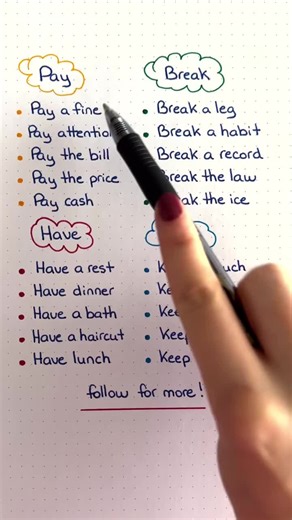 Pay
Pay a fine
Pay attention
Pay the bill
Pay the price
Pay cash
Break
Break a leg
Break a habit
Break a record
Break the law
the ice
Have
Have a rest
Have dinner
Have a bath
Have a haircut
Have lunch
Keep
Keep
follow for more!